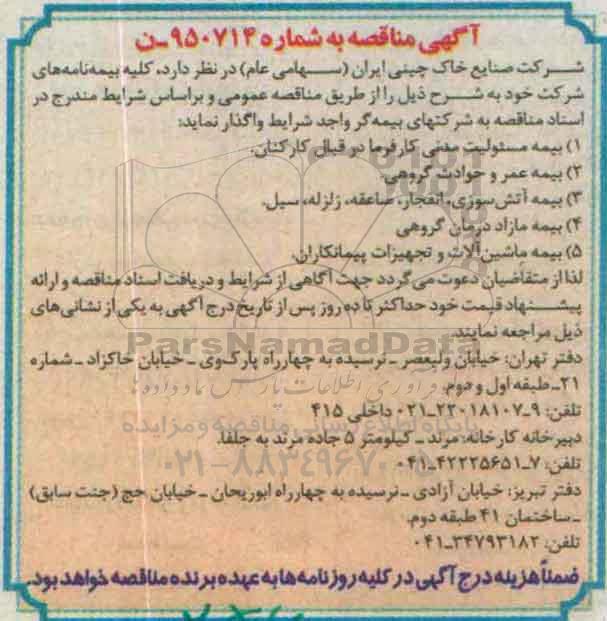 آگهی مناقصه به شماره ۹۵۰۷۱۴-ن
شرکت صنایع خاک چینی ایران (سهامی عام) در نظر دارد، کلیه بیمه‌نامه‌های
شرکت خود به شرح ذیل را از طریق مناقصه عمومی و براساس شرایط مندرج در
اسناد مناقصه به شرکتهای بیمه‌گر واجد شرایط واگذار نماید:
۱) بیمه مسئولیت مدنی کارفرما در قبال کارکنان.
۲) بیمه عمر و حوادث گروهی.
۳) بیمه آتش‌سوزی، انفجار، صاعقه، زلزله، سیل.
۴) بیمه مازاد درمان گروهی
۵) بیمه ماشین‌آلات و تجهیزات پیمانکاران.
لذا از متقاضیان دعوت می‌گردد جهت آگاهی از شرایط و دریافت اسناد مناقصه و ارائه
پیشنهاد قیمت خود حداکثر تا ده روز پس از تاریخ درج آگهی به یکی از نشانی‌های
ذیل مراجعه نمایند.
ParsNamadData
دفتر تهران: خیابان ولیعصر - نرسیده به چهارراه پارک‌وی - خیابان خاکزاد - شماره
۲۱- طبقه اول و دوم.
تلفن: ۹-۲۲۰۱۸۱۰۷-۰۲۱ داخلی ۴۱۵
پایگاه اطلاع رسانی مناقصه و مزایده
دبیرخانه کارخانه: مرند - کیلومتر ۵ جاده مرند به جلفا.
۰۲۱-۸۸۳۴۹۶۷۰-۵
تلفن: ۷-۴۲۲۲۵۶۵۱-۰۴۱
دفتر تبریز: خیابان آزادی - نرسیده به چهارراه ابوریحان - خیابان حج (جنت سابق)
- ساختمان ۴۱ طبقه دوم.
تلفن: ۳۴۷۹۳۱۸۲-۰۴۱
ضمناً هزینه درج آگهی در کلیه روزنامه‌ها به عهده برنده مناقصه خواهد بود.